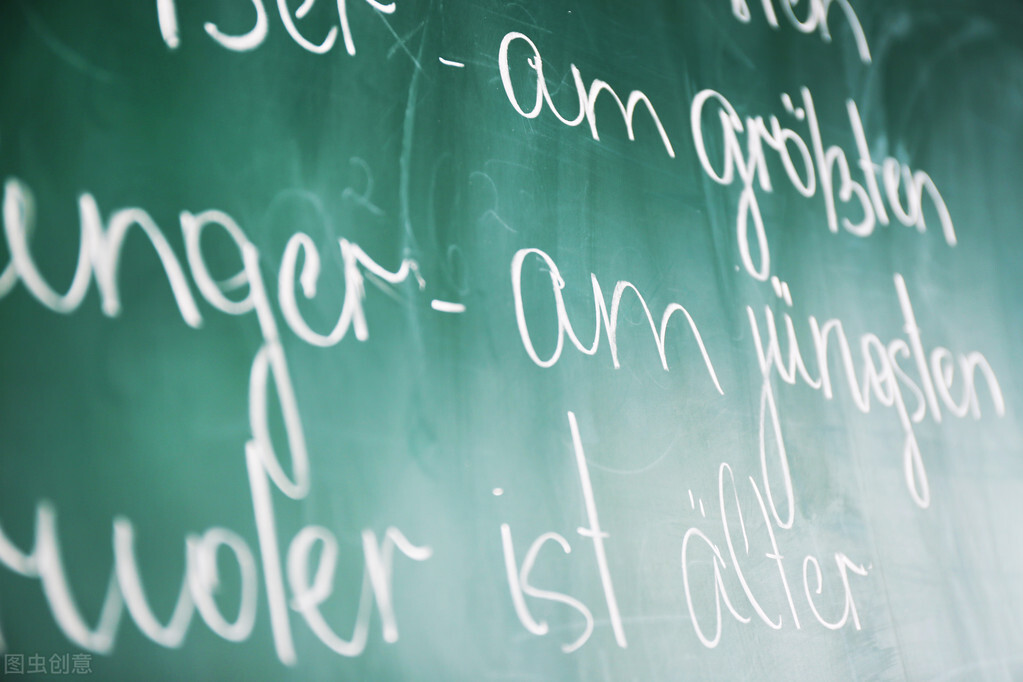 - am größten
unger - am jüngsten
uder ist älter
图虫创意